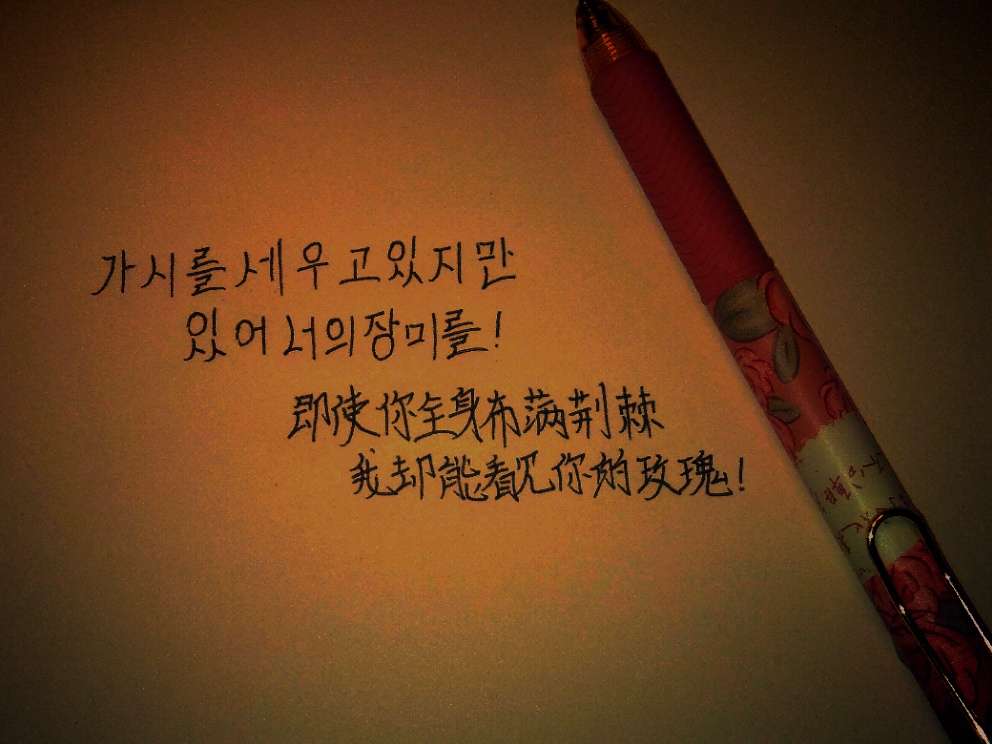 가시를세우고있지만
있어너의장미를!
即使你全身布满荆棘
我却能看见你的玫瑰!